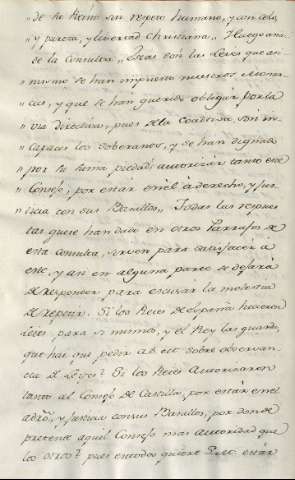 " de su Reino sin respeto humano, y con celo
" y pureza, y livertad christiana " Y luego aña
de la Consulta " Estas son las Leyes que an
" mismo se han impuesto nuestros Monar
" cas, y que se han querido obligar por la
" via directiva, pues de la coactiva son in
" capaces los soberanos, y se han dignado
" por su suma piedad autorizar tanto este
" Consejo, por estar en el à derecho, y Jus
" ticia con sus Basallos " Todas las respues
tas que se han dado en otros Parrafos de
esta consulta, sirven para satisfacer à
este, y an en alguna parte se dejará
de responder para escusar la molestia
de repetir. Si los Reies de España hicieron
Leies para si mismos, y el Rey las guarda,
que hai que pedir à S. M. sobre observan
cia de Leyes? Si los Reies autorizaron
tanto al Consejo de Castilla, por estár en el
à dro, y Justicia con sus Basallos, por donde
pretende aquel Consejo mas autoridad que
los otros? pues en todos quiere S. M. estàr